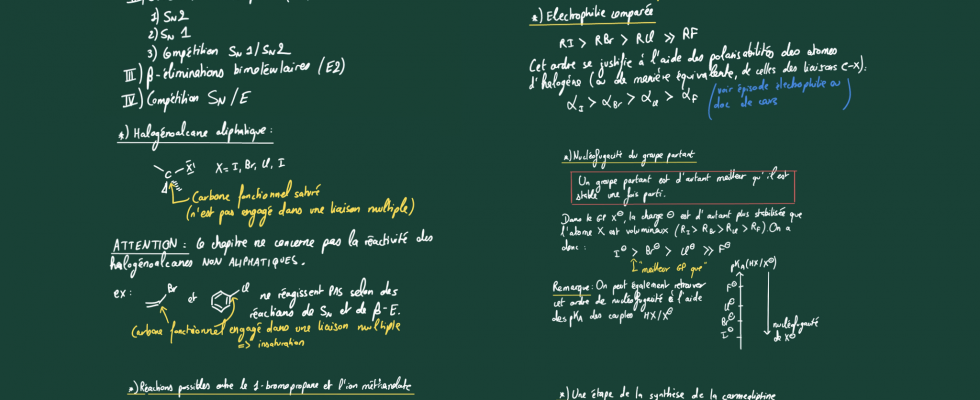 1) SN2
2) SN 1
3) Compétition SN1/SN2
III) β-éliminations bimoléculaires (E2)
IV) Compétition SN/E
*) Halogénoalcane aliphatique:
C X X = I, Br, Cl, I
Carbone fonctionnel saturé
(n'est pas engagé dans une liaison multiple)
ATTENTION : Ce chapitre ne concerne pas la réactivité des
halogénoalcanes NON ALIPHATIQUES.
ex: Br et Cl ne réagissent PAS selon des
réactions de SN et de β-E.
Carbone fonctionnel engagé dans une liaison multiple
=> insaturation
*) Réactions possibles entre le 1-bromopropane et l'ion méthanolate
*) Electrophilie comparée
RI > RBr > RCl >> RF
Cet ordre se justifie à l'aide des polarisabilités des atomes
d'halogène (ou de manière équivalente, de celles des liaisons C-X):
αI > αBr > αCl > αF (voir épisode électrophile ou
doc de cours)
*) Nucléofugacité du groupe partant
Un groupe partant est d'autant meilleur qu'il est
stable une fois parti.
Dans le GP X⊖, la charge ⊖ est d'autant plus stabilisée que
l'atome X est volumineux (RI > RBr > RCl > RF). On a
donc : I⊖ > Br⊖ > Cl⊖ >> F⊖
"meilleur GP que"
Remarque: On peut également retrouver
cet ordre de nucléofugacité à l'aide
des pKA des couples HX/X⊖
pKA(HX/X⊖)
F⊖
Cl⊖
Br⊖
I⊖
nucléofugacité
de X⊖
*) Une étape de la synthèse de la carmegliptine